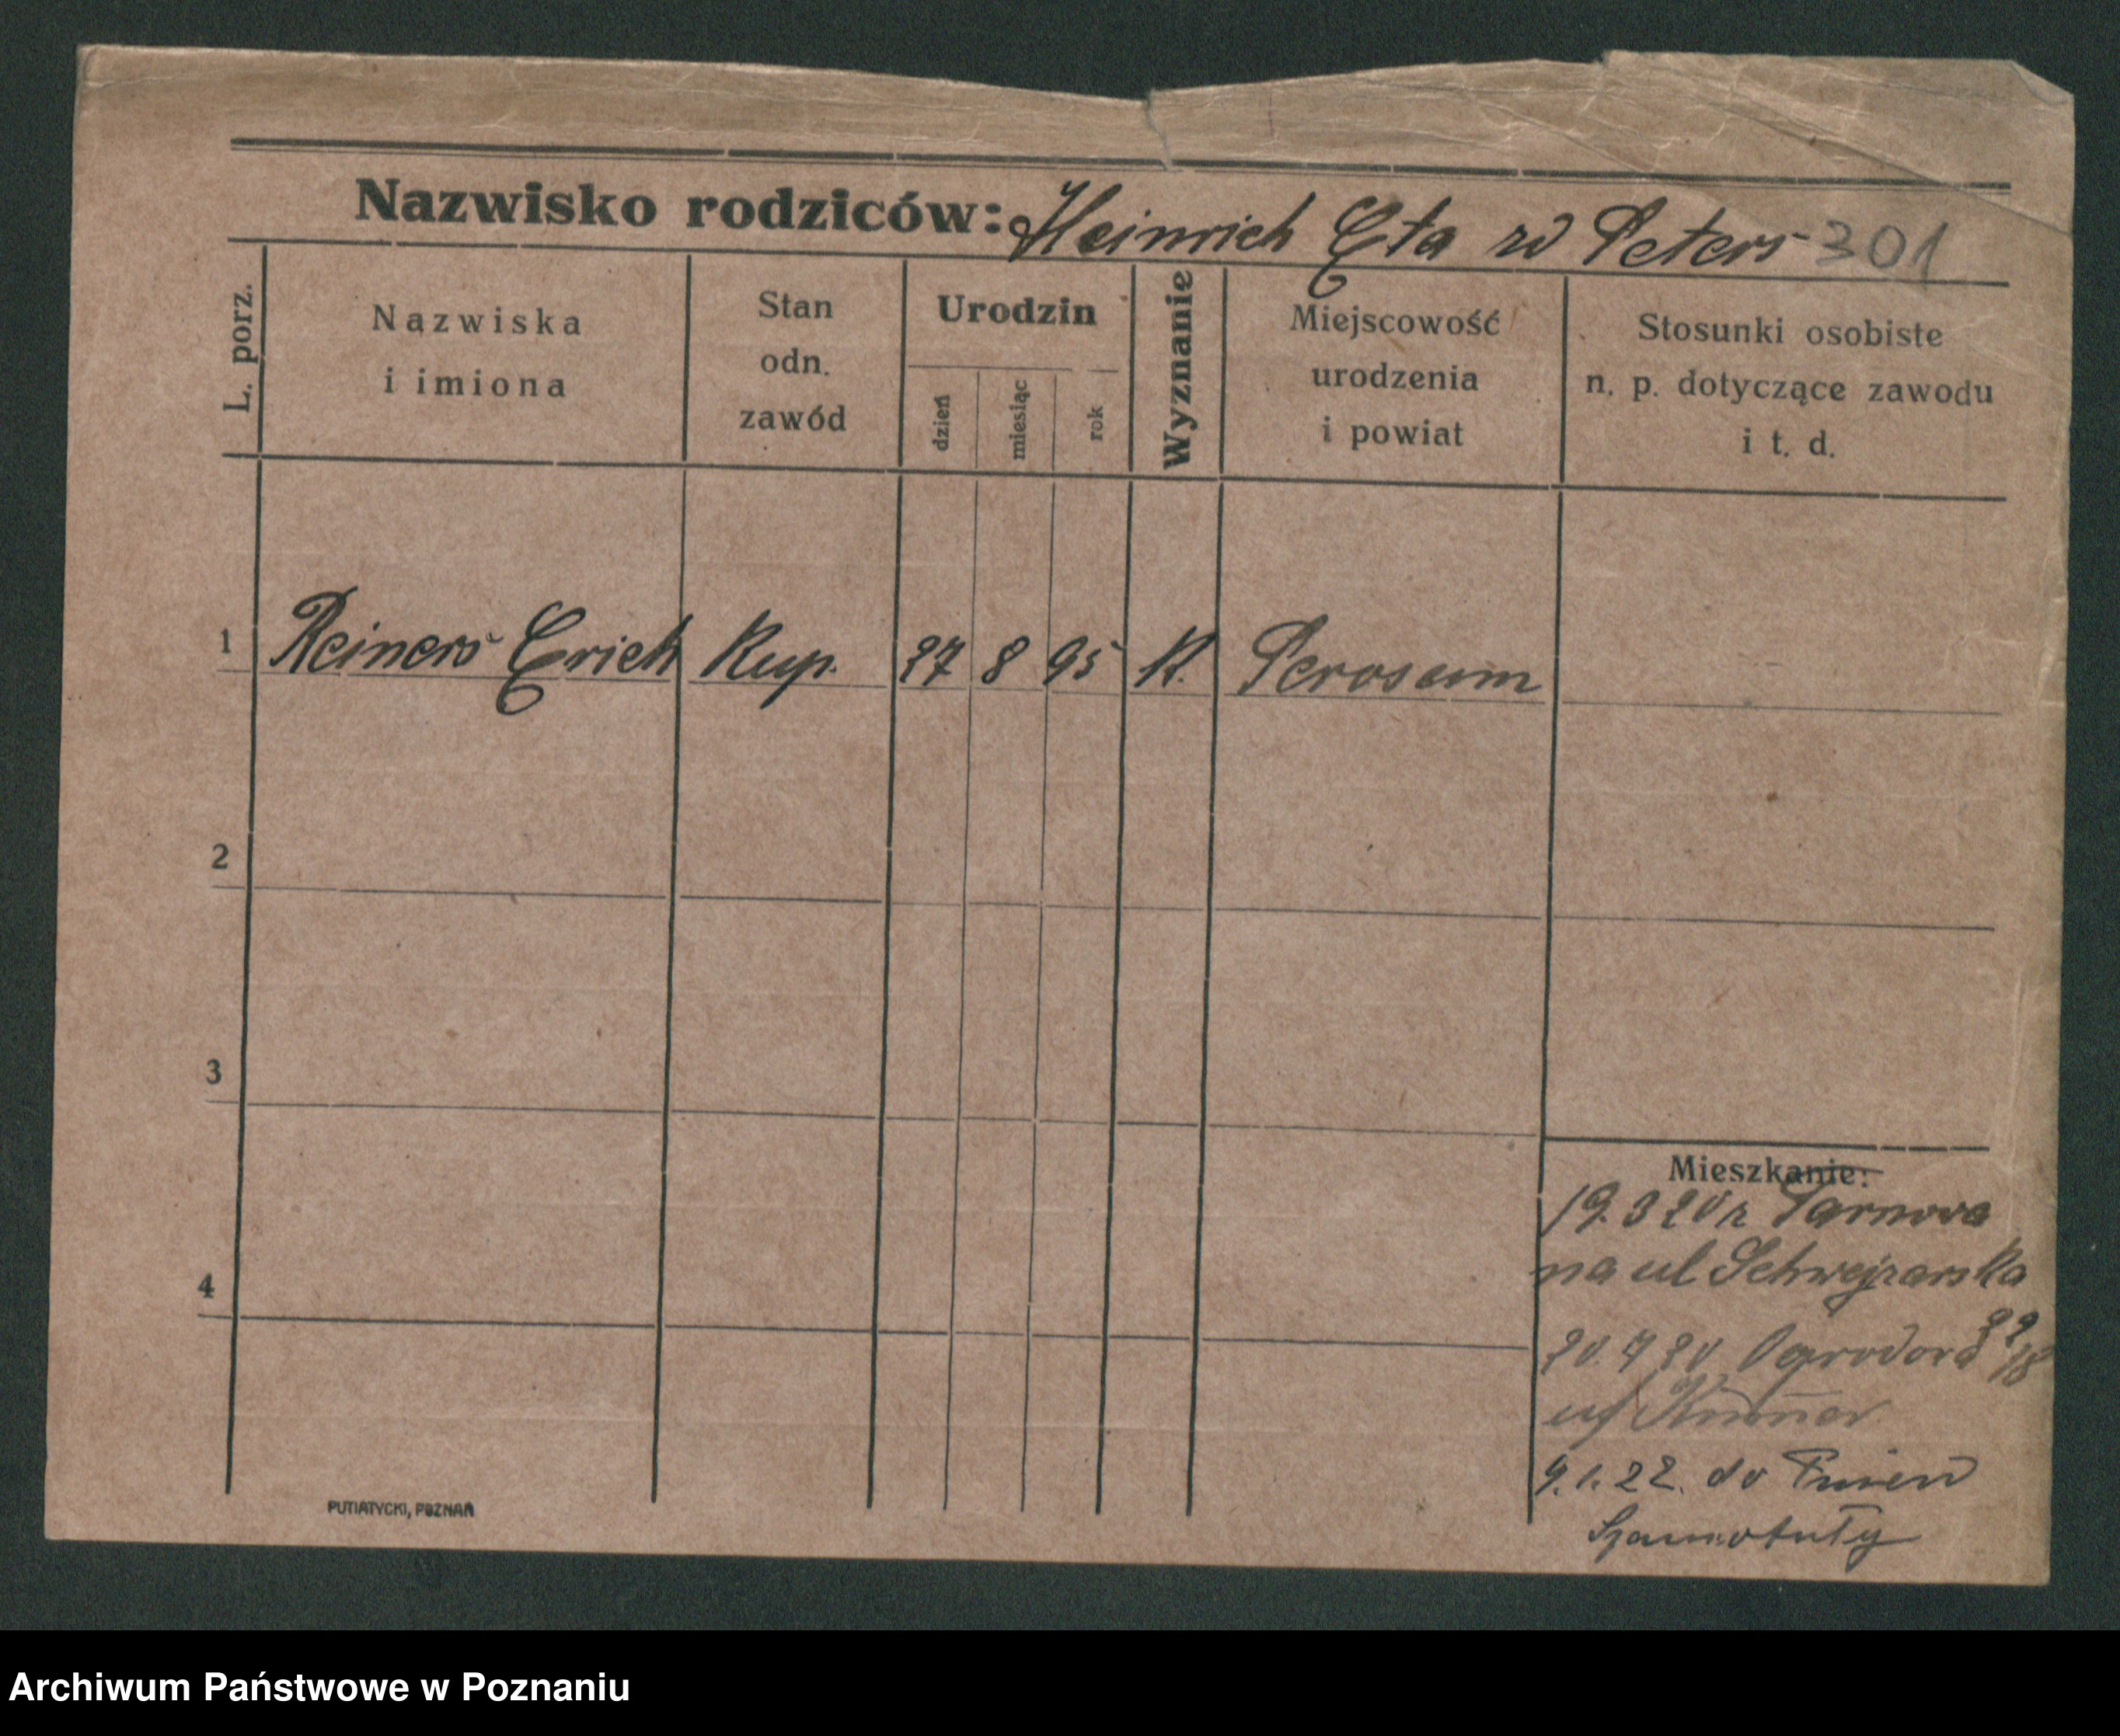 Nazwisko rodziców: Heinrich Eta zd Peters 301
L. porz.
Nazwiska i imiona
Stan odn. zawód
Urodzin
dzień
miesiąc
rok
Wyznanie
Miejscowość urodzenia i powiat
Stosunki osobiste n. p. dotyczące zawodu i t. d.
1 Reiners Erich Kup. 27 8 95 K.
2
3
4
Mieszkanie:
19.3 20 r
na ul Schwejzarska
22
20.7 20 Ogrodova 18
9.1.22. do
Szamotuły
PUTIATYCKI, POZNAŃ
Archiwum Państwowe w Poznaniu